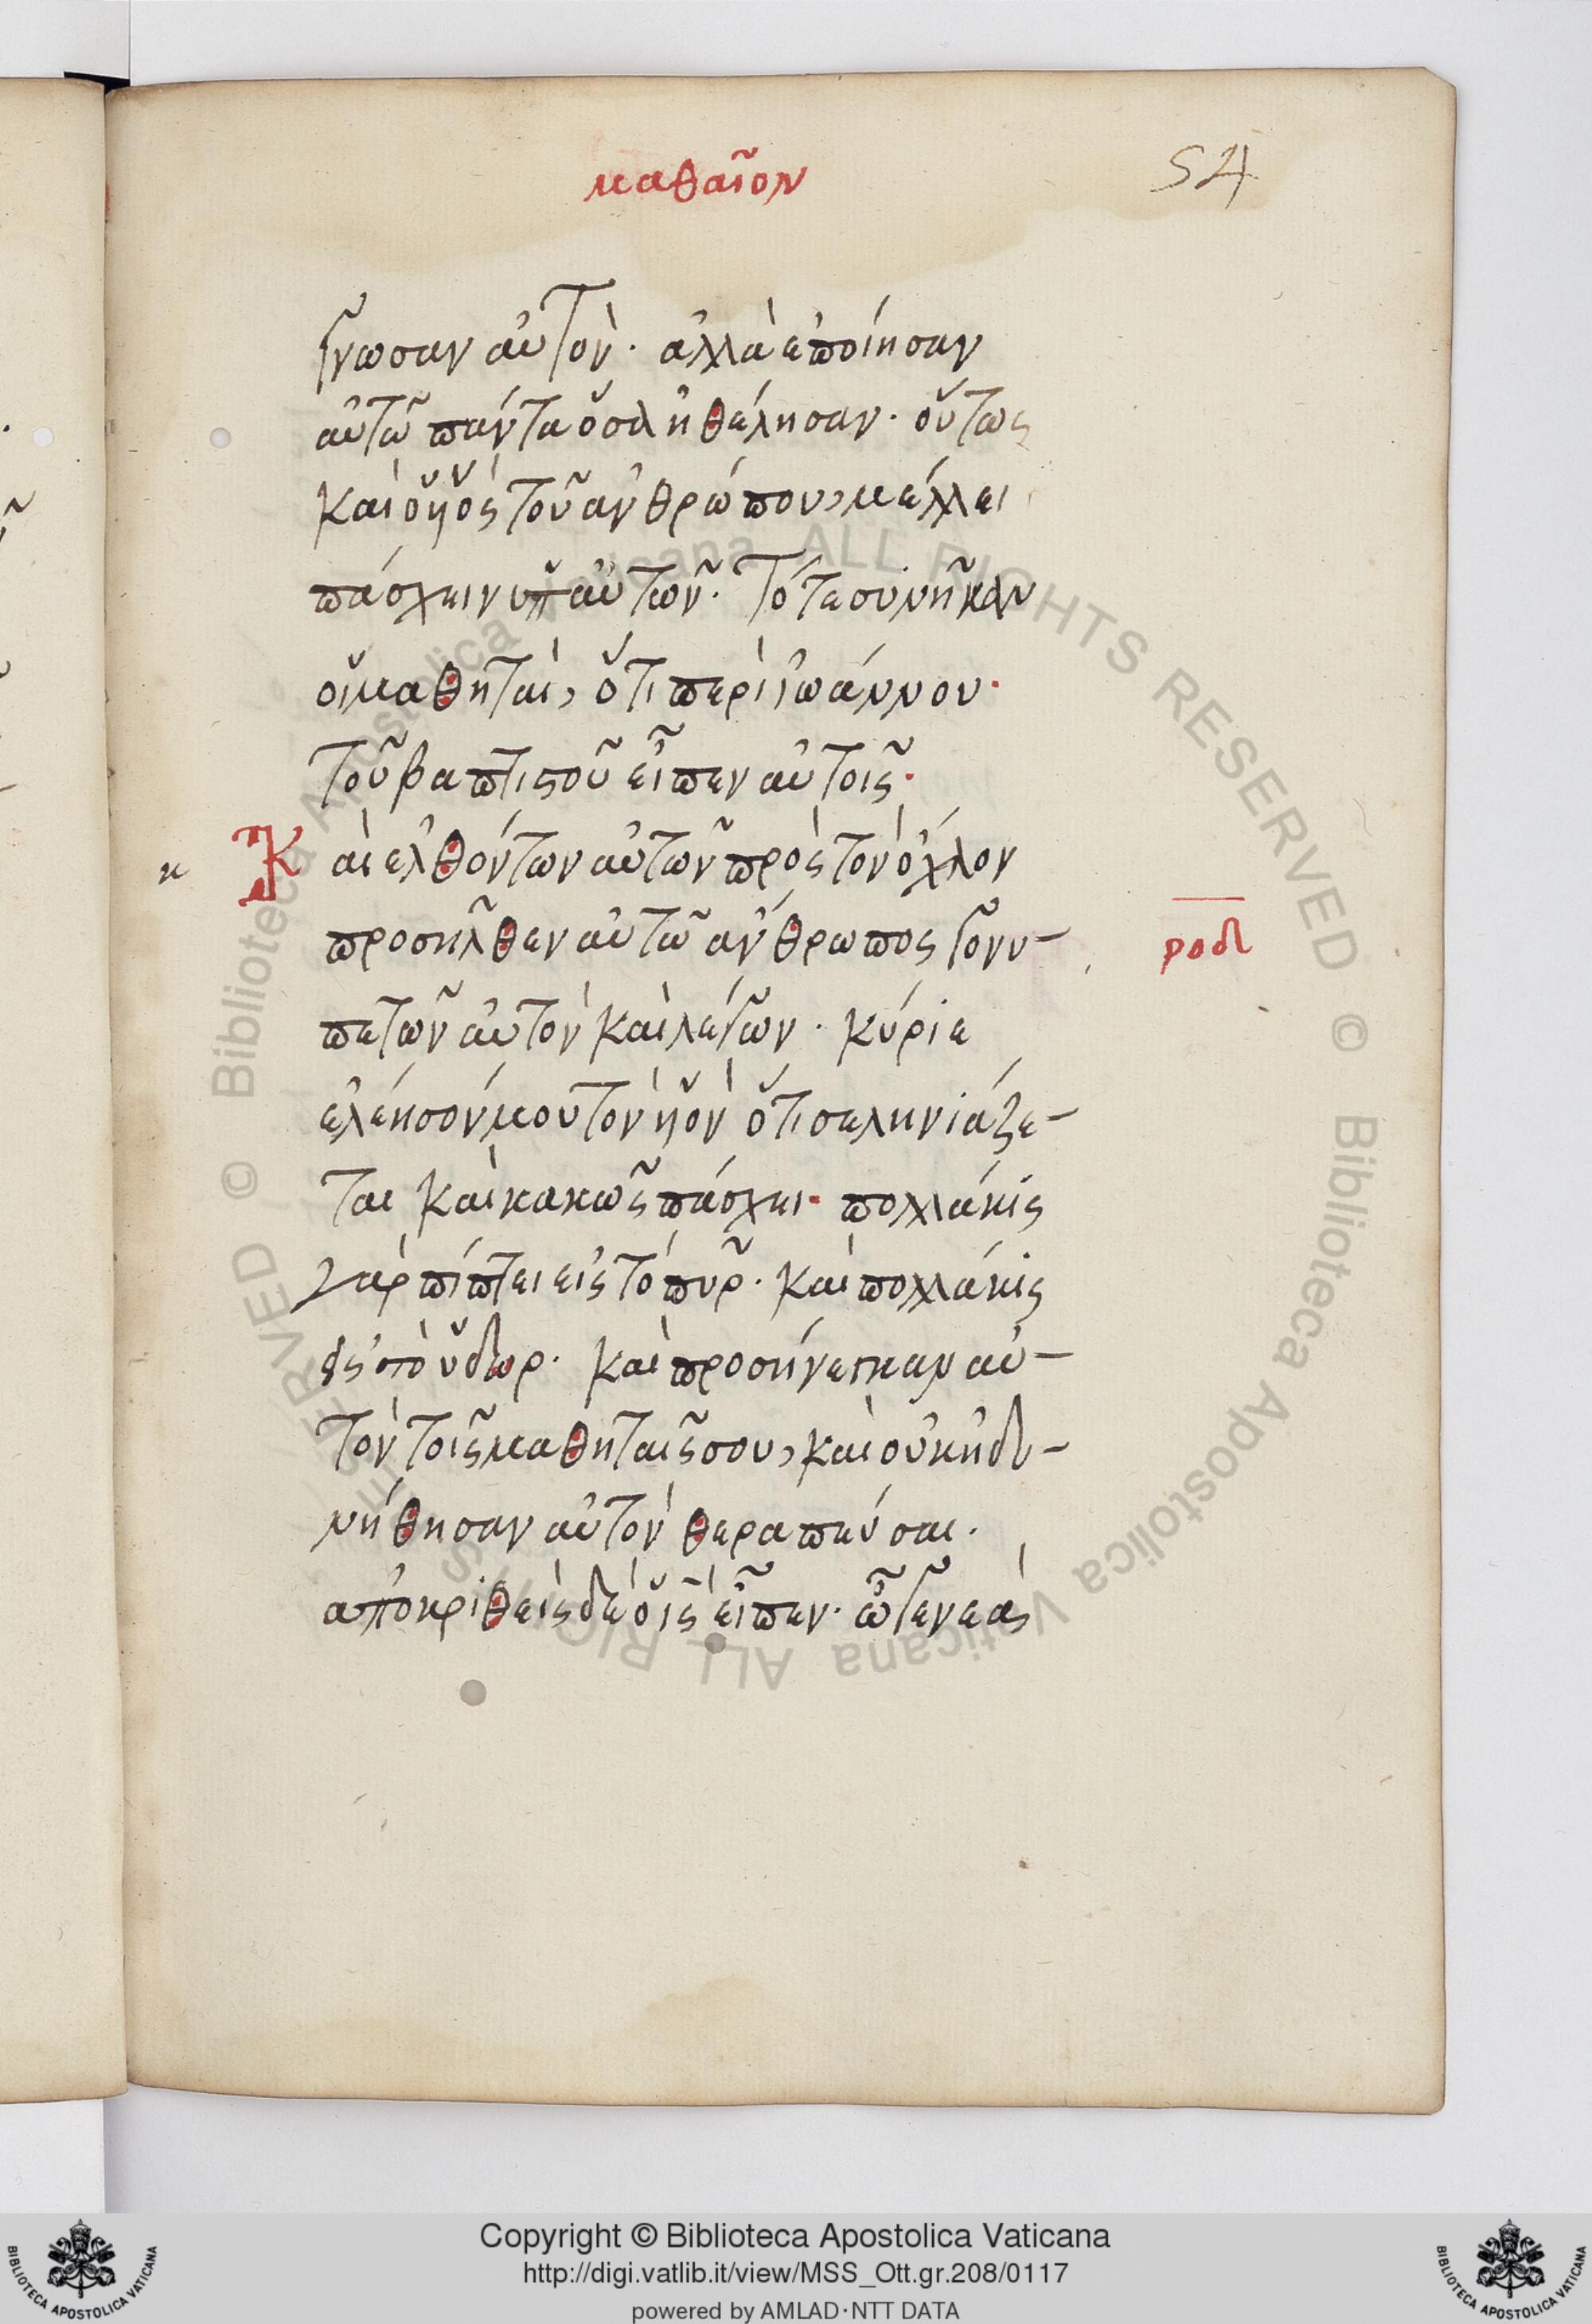 μαθαῖον
54
γνωσαν αὐτὸν· ἀλλὰ ἐποίησαν
αὐτῶ πάντα ὅσα ἠθέλησαν· οὕτως
καὶ ὁ ὑὸς τοῦ ἀνθρώπου, μέλλει
πάσχειν ὑπ αὐτῶν· Τότε συνῆκαν
οἱ μαθηταὶ, ὅτι περὶ ἰωάννου·
τοῦ βαπτιστοῦ εἶπεν αὐτοῖς·
κ Καὶ ἐλθόντων αὐτῶν πρὸς τὸν ὄχλον
προσῆλθεν αὐτῶ ἄνθρωπος γονυ-
ροδ
πετῶν αὐτὸν καὶ λέγων· κύριε
ἐλέησόν μου τὸν ὑὸν ὅτι σεληνιάζε-
ται καὶ κακῶς πάσχει· πολλάκις
γὰρ πίπτει εἰς τὸ πῦρ· καὶ πολλάκις
εἰς τὸ ὕδωρ· καὶ προσήνεγκαν αὐ-
τὸν τοῖς μαθηταῖς σου, καὶ οὐκ ἠδυ-
νήθησαν αὐτὸν θεραπεύσαι·
ἀποκριθεὶς δὲ ὁ ις εἶπεν· ὦ γενεὰ
Copyright © Biblioteca Apostolica Vaticana
http://digi.vatlib.it/view/MSS_Ott.gr.208/0117
powered by AMLAD·NTT DATA
BIBLIOTECA APOSTOLICA VATICANA
BIBLIOTECA APOSTOLICA VATICANA
© Biblioteca Apostolica Vaticana ALL RIGHTS RESERVED © Biblioteca Apostolica Vaticana ALL RIGHTS RESERVED